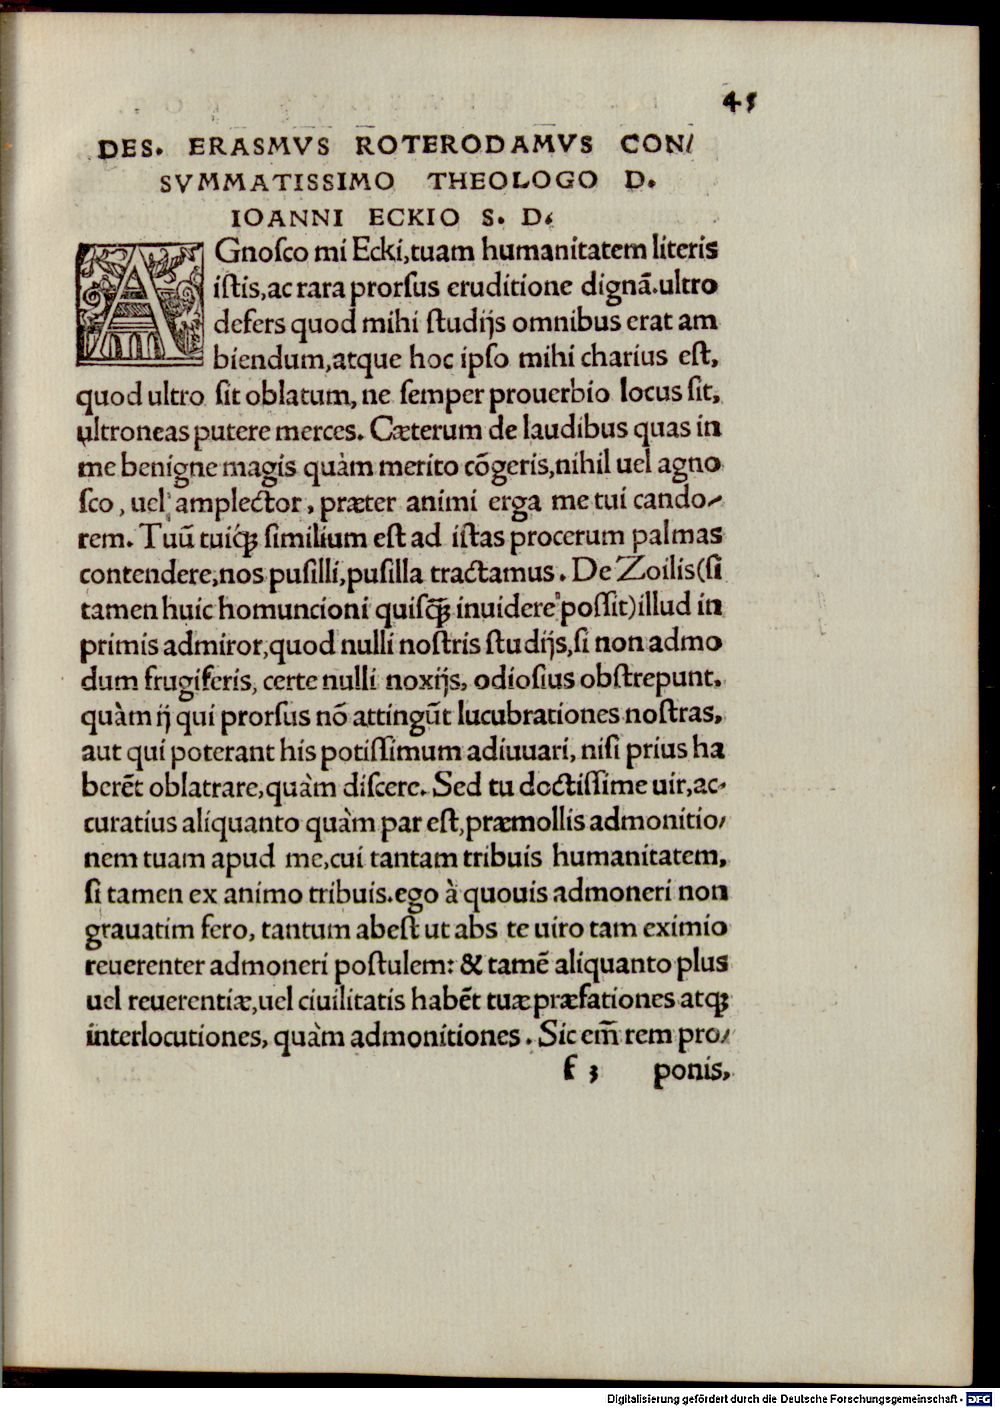 45
DES. ERASMVS ROTERODAMVS CON/
SVMMATISSIMO THEOLOGO D.
IOANNI ECKIO S. D.
AGnoſco mi Ecki, tuam humanitatem literis
iſtis, ac rara prorſus eruditione dignã. ultro
defers quod mihi ſtudijs omnibus erat am
biendum, atque hoc ipſo mihi charius eſt,
quod ultro ſit oblatum, ne ſemper prouerbio locus ſit,
ultroneas putere merces. Cæterum de laudibus quas in
me benigne magis quàm merito cõgeris, nihil uel agno
ſco, uel amplector, præter animi erga me tui cando/
rem. Tuũ tuiq́ꝫ ſimilium eſt ad iſtas procerum palmas
contendere, nos puſilli, puſilla tractamus. De Zoilis (ſi
tamen huic homuncioni quiſq̃ꝫ inuidere poſſit) illud in
primis admiror, quod nulli noſtris ſtudijs, ſi non admo
dum frugiferis, certe nulli noxijs, odioſius obſtrepunt,
quàm ij qui prorſus nõ attingũt lucubrationes noſtras,
aut qui poterant his potiſſimum adiuuari, niſi prius ha
berẽt oblatrare, quàm diſcere. Sed tu doctiſſime uir, ac-
curatius aliquanto quàm par eſt, præmollis admonitio/
nem tuam apud me, cui tantam tribuis humanitatem,
ſi tamen ex animo tribuis. ego à quouis admoneri non
grauatim fero, tantum abeſt ut abs te uiro tam eximio
reuerenter admoneri poſtulem: & tamẽ aliquanto plus
uel reuerentiæ, uel ciuilitatis habẽt tuæ præfationes atqꝫ
interlocutiones, quàm admonitiones. Sic em̃ rem pro/
f 3 ponis,
Digitalisierung gefördert durch die Deutsche Forschungsgemeinschaft - DFG